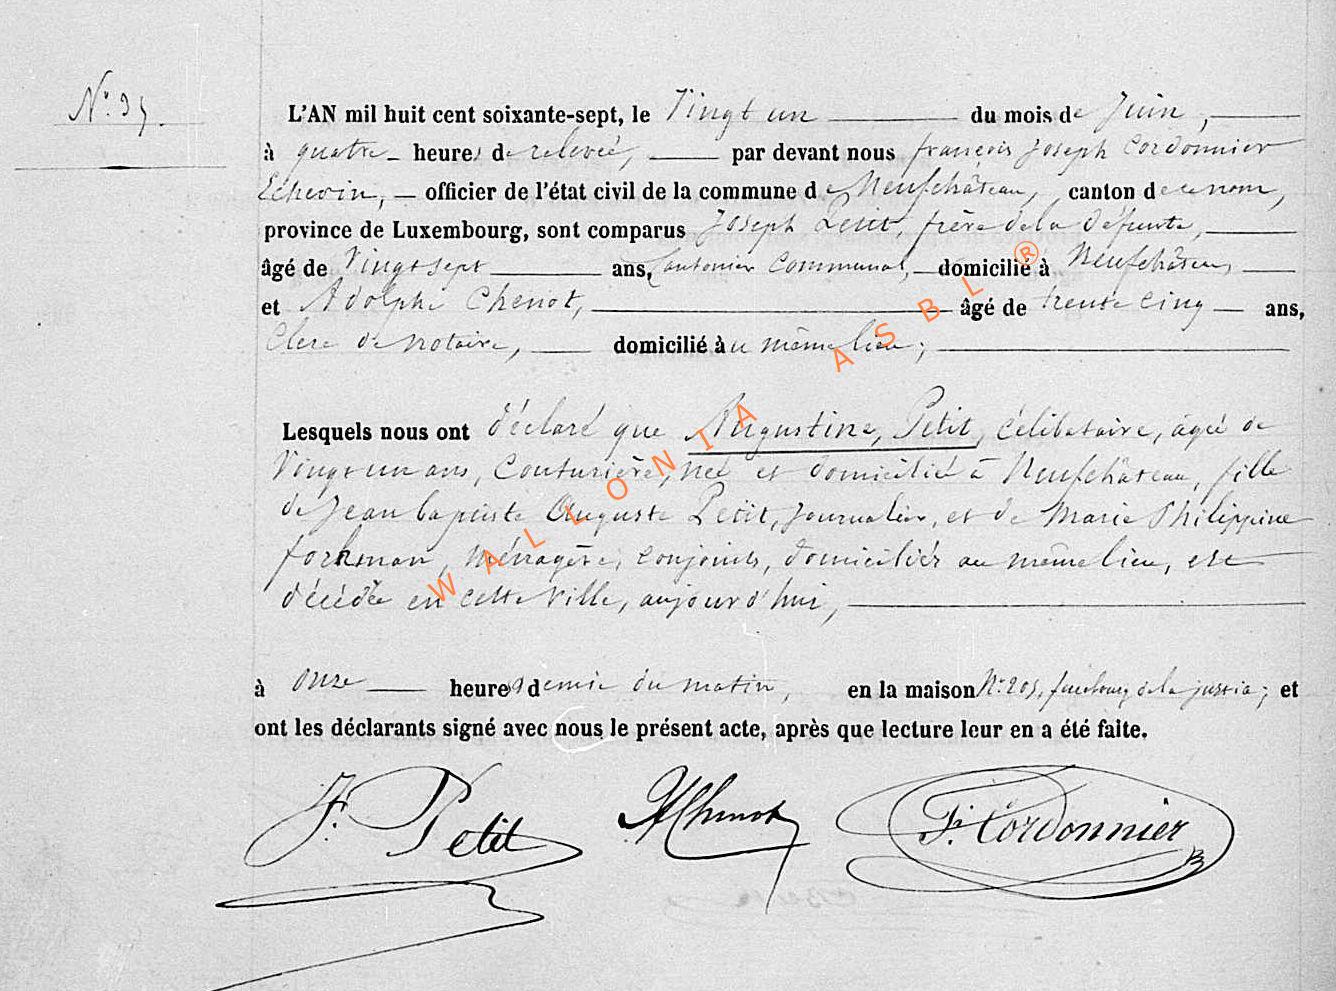 N° 35.
L'AN mil huit cent soixante-sept, le Vingt un du mois de Juin,
à quatre heures de relevée, par devant nous françois Joseph Cordonnier
Echevin, officier de l'état civil de la commune de Neufchâteau, canton de ce nom,
province de Luxembourg, sont comparus Joseph Petit, frère de la défunte,
âgé de Vingt sept ans, Cantonier Communal, domicilié à Neufchâteau
et Adolphe Chenot, âgé de trente cinq ans,
Clerc de notaire, domicilié au même lieu;
Lesquels nous ont déclaré que Augustine, Petit, Célibataire, agée de
Vingt un ans, Couturière, née et domiciliée à Neufchâteau, fille
de Jean baptiste Auguste Petit, Journalier, et de Marie Philippine
forhman, Ménagère, conjoints, domiciliés au même lieu, est
décédée en cette Ville, aujourd'hui,
à onze heures demie du matin, en la maison N° 205, faubourg de la justice; et
ont les déclarants signé avec nous le présent acte, après que lecture leur en a été faite.
J. Petit AChenot Fr Cordonnier
WALLONIA ASBL ®